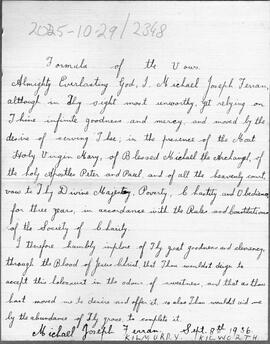 2025-10-29/2348
Formula of the Vows.
Almighty Everlasting God, I, Michael Joseph Ferran,
although in Thy sight most unworthy, yet relying on
Thine infinite goodness and mercy, and moved by the
desire of serving Thee; in the presence of the Most
Holy Virgin Mary, of Blessed Michael the Archangel, of
the holy Apostles Peter and Paul, and of all the heavenly court,
vow to Thy Divine Majesty, Poverty, Chastity and Obedience
for three years, in accordance with the Rules and Constitutions
of the Society of Charity.
I therefore humbly implore of Thy great goodness and clemency,
through the Blood of Jesus Christ, that Thou wouldst deign to
accept this holocaust in the odour of sweetness, and that as Thou
hast moved me to desire and offer it, so also Thou wouldst aid me
by the abundance of Thy grace, to complete it.
Michael Joseph Ferran. Sept. 8th 1936.
KILMURRY. KILWORTH